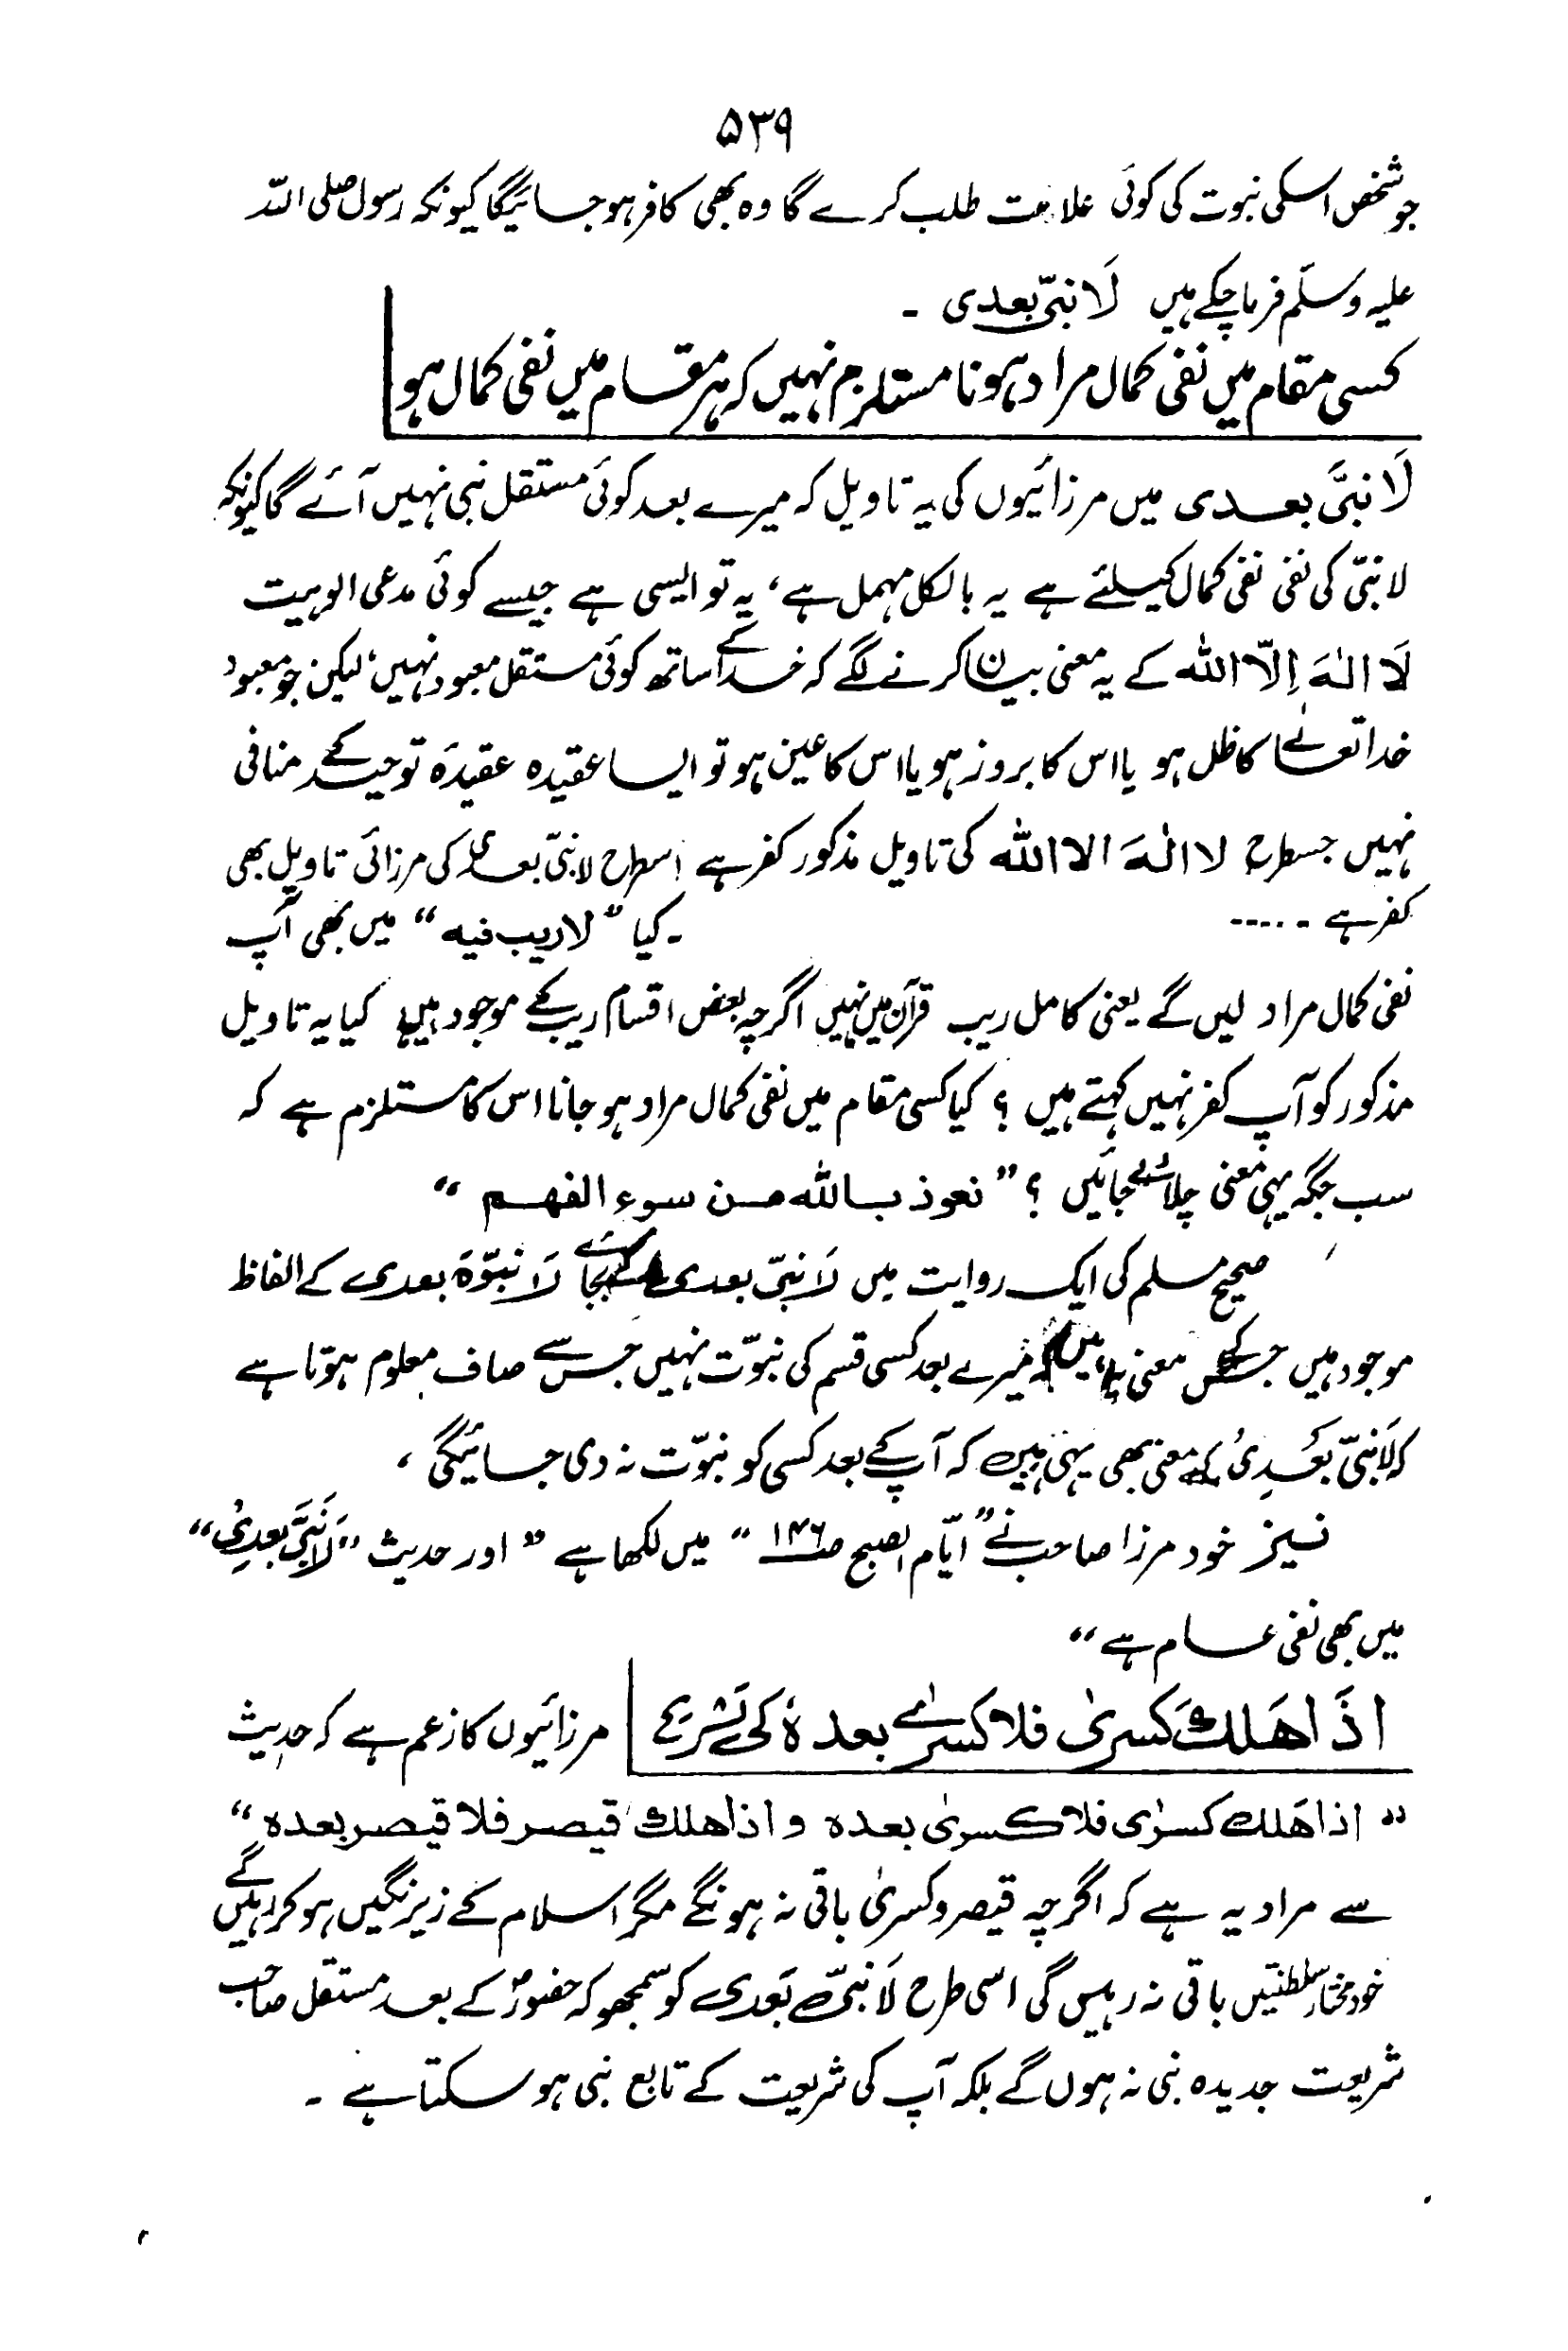 ۵۳۹
جو شخص اسکی نبوت کی کوئی علامت طلب کرے گا وہ بھی کافر ہو جائیگا کیونکہ رسول صلی اللہ
علیہ وسلّم فرما چکے ہیں لَا نبیّ بعدی ۔
کسی مقام میں نفی کمال مراد ہونا مستلزم نہیں کہ ہر مقام میں نفی کمال ہو
لَا نبیَّ بعدی میں مرزائیوں کی یہ تاویل کہ میرے بعد کوئی مستقل نبی نہیں آئے گا کیونکہ
لا نبیّ کی نفی نفی کمال کیلئے ہے یہ بالکل مہمل ہے، یہ تو ایسی ہے جیسے کوئی مدعی الوہیت
لَا الٰہَ اِلّا اللہ کے یہ معنی بیان کرنے لگے کہ خدا کے ساتھ کوئی مستقل معبود نہیں، لیکن جو معبود
خدا تعالےٰ کا ظل ہو یا اس کا بروز ہو یا اس کا عین ہو تو ایسا عقیدہ عقیدۂ توحید کے منافی
نہیں جسطرح لا الٰہَ الا اللہ کی تاویل مذکور کفر ہے اسطرح لا نبیّ بعدی کی مرزائی تاویل بھی
کفر ہے ۔۔۔۔۔ ۔ کیا ”لا ریب فیہ“ میں بھی آپ
نفی کمال مراد لیں گے یعنی کامل ریب قرآن میں نہیں اگرچہ بعض اقسام ریب کے موجود ہیں، کیا یہ تاویل
مذکور کو آپ کفر نہیں کہتے ہیں ؟ کیا کسی مقام میں نفی کمال مراد ہو جانا اس کا مستلزم ہے کہ
سب جگہ یہی معنی چلائے جائیں ؟ ”نعوذ باللہ من سوء الفھم“
صحیح مسلم کی ایک روایت میں لَا نبیّ بعدی کے بجائے لَا نبوّۃَ بعدی کے الفاظ
موجود ہیں جس کے معنی یہ ہیں کہ میرے بعد کسی قسم کی نبوّت نہیں جس سے صاف معلوم ہوتا ہے
کہ لَا نبیّ بَعْدِیْ کے معنی بھی یہی ہیں کہ آپ کے بعد کسی کو نبوّت نہ دی جائیگی،
نیز خود مرزا صاحب نے ”ایّام الصبح ص۱۴۶“ میں لکھا ہے ”اور حدیث ”لَا نَبِیَّ بعدِیْ“
میں بھی نفی عام ہے“
اذَا ھَلَکَ کسریٰ فلا کسریٰ بعدہٗ کی تشریح مرزائیوں کا زعم ہے کہ حدیث
”اذا ھَلک کسرٰی فلا کسریٰ بعدہ و اذا ھلک قیصر فلا قیصر بعدہ“
سے مراد یہ ہے کہ اگرچہ قیصر و کسریٰ باقی نہ ہونگے مگر اسلام کے زیر نگیں ہو کر رہیں گے
خود مختار سلطنتیں باقی نہ رہیں گی اسی طرح لَا نبیّ بَعدی کو سمجھو کہ حضورؐ کے بعد مستقل صاحب
شریعت جدیدہ نبی نہ ہوں گے بلکہ آپ کی شریعت کے تابع نبی ہو سکتا ہے ۔